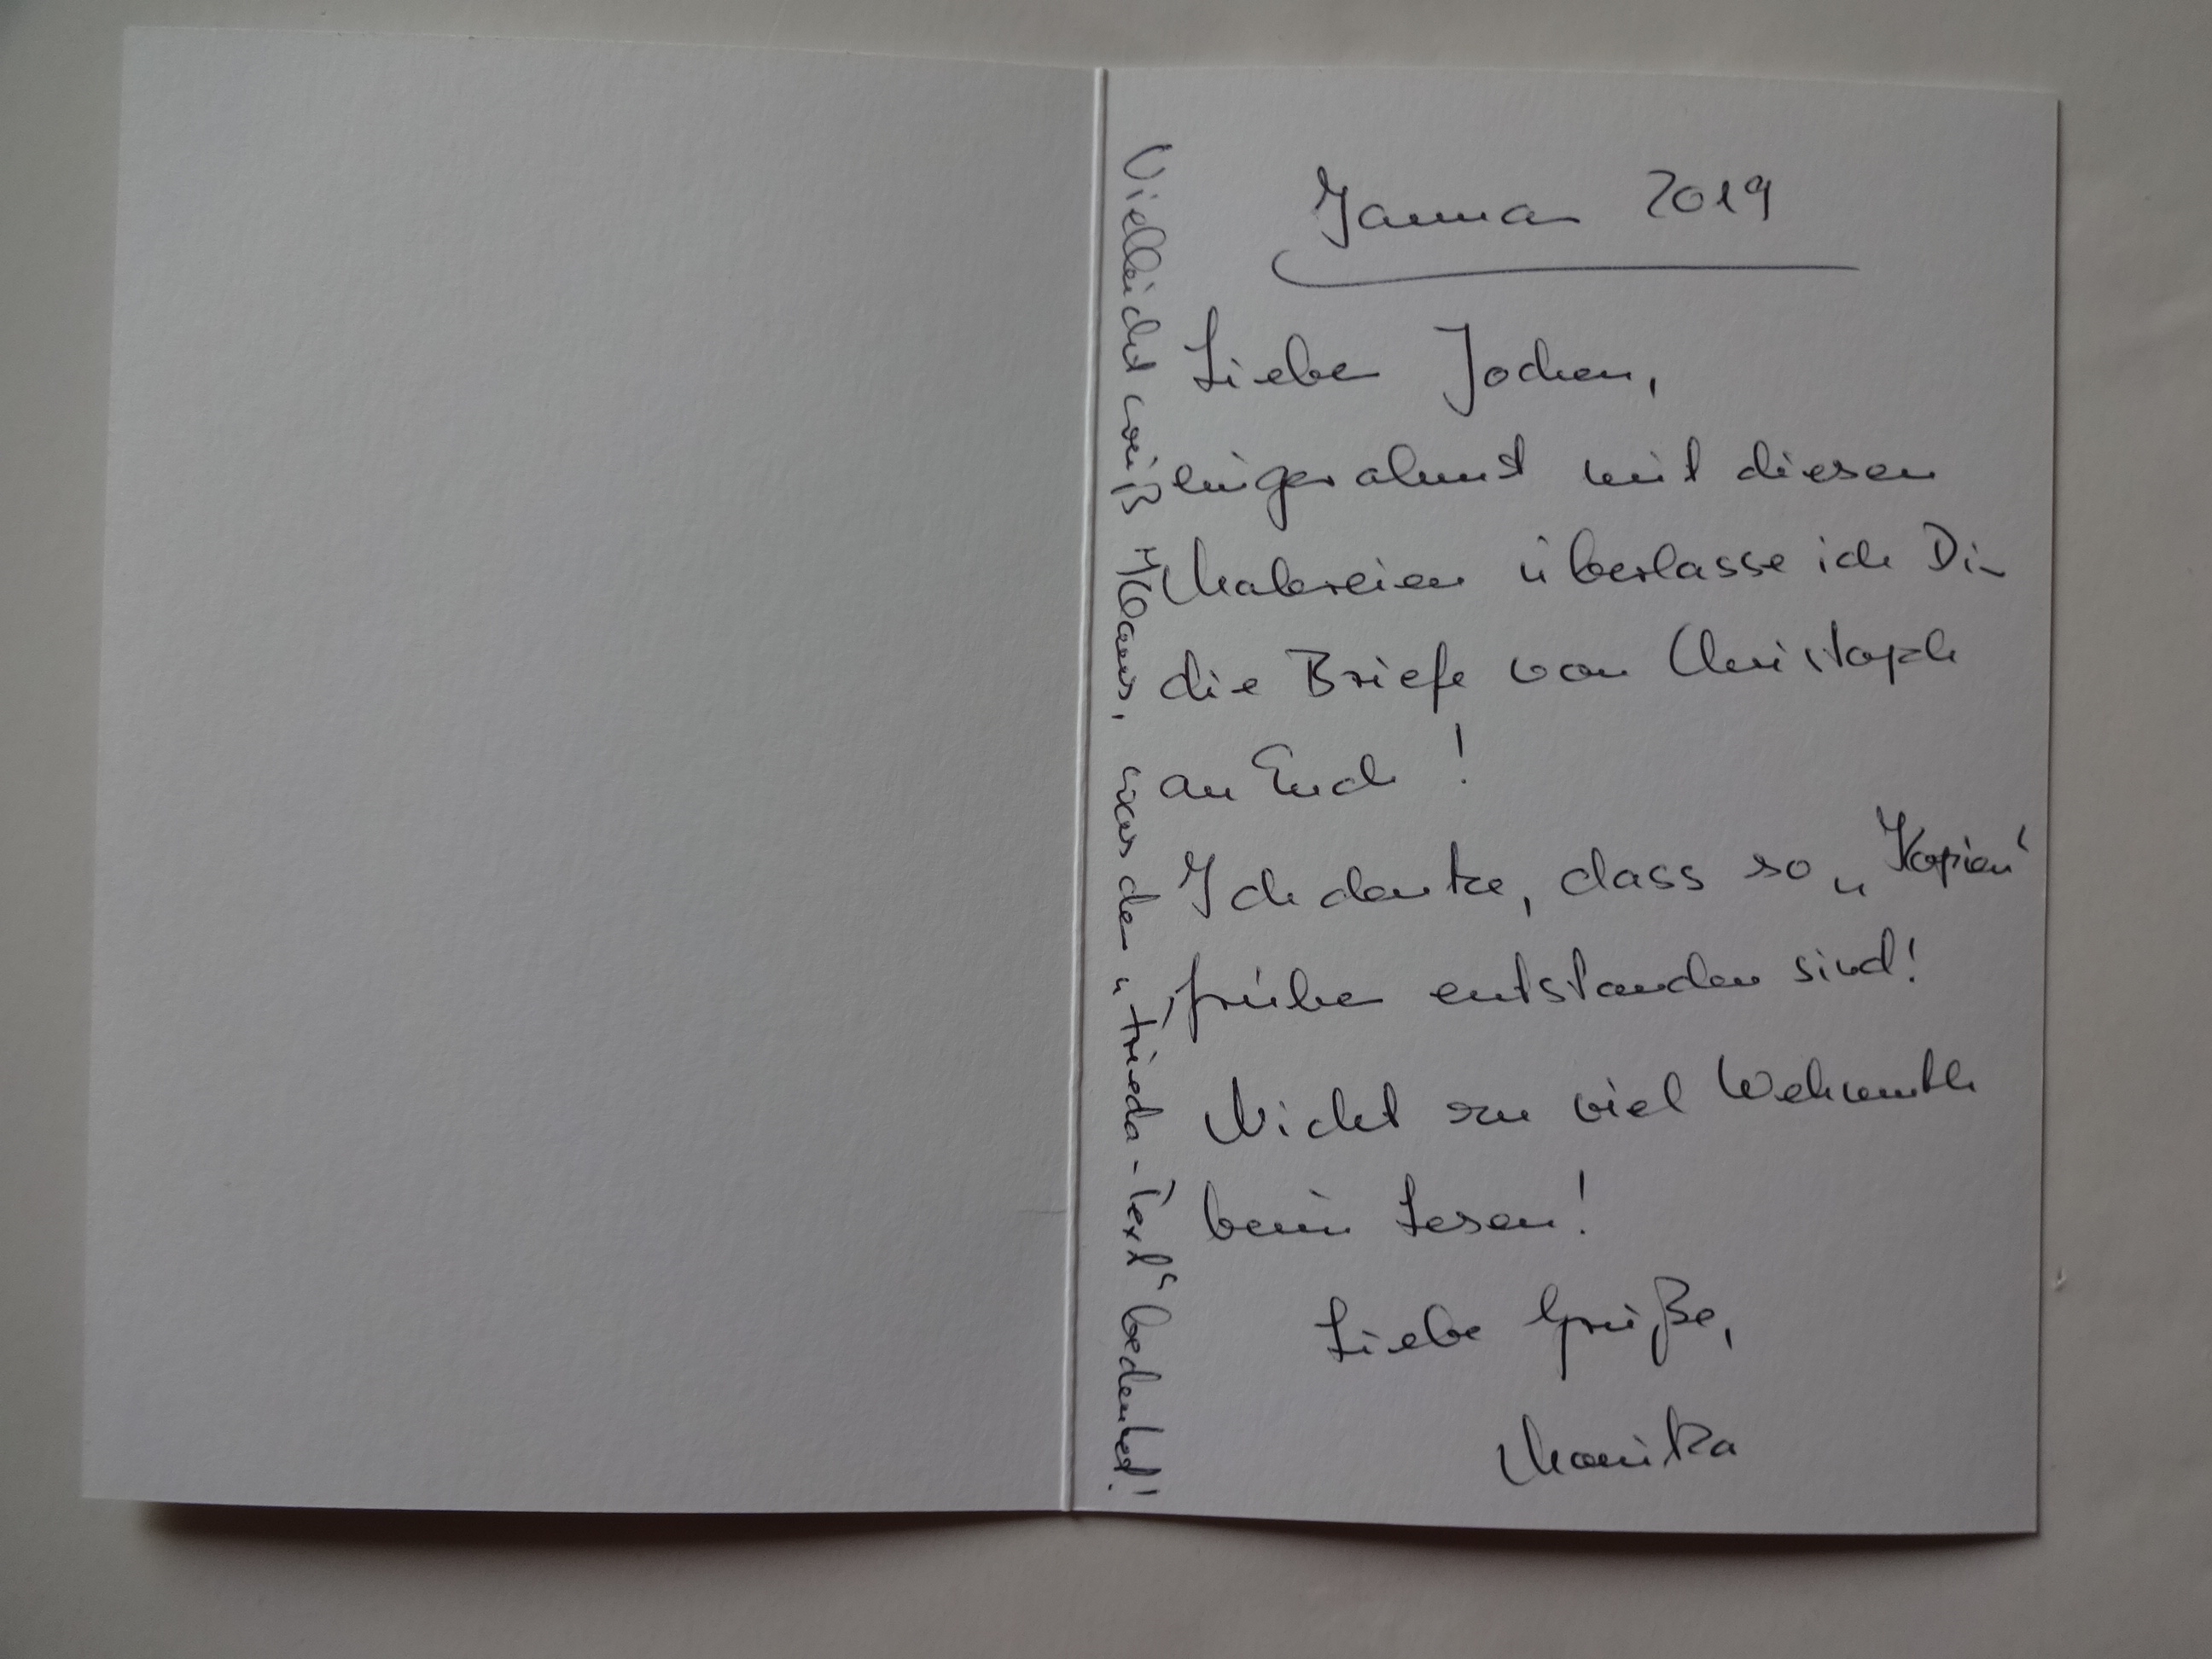 Januar 2019
Lieber Jochen,
eingerahmt mit diesen
Malereien überlasse ich Dir
die Briefe von Christoph
an Euch !
Ich denke, dass so „Kopien“
früher entstanden sind!
Nicht zu viel Wehmuth
beim Lesen!
Liebe Grüße,
Monika
Vielleicht weiß Klaus, was der „Frieda-Text“ bedeutet!